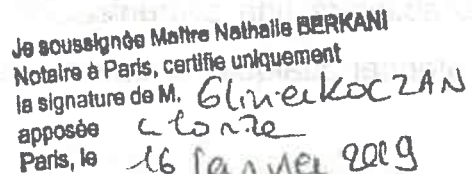 Je soussignée Maître Nathalie BERKANI
Notaire à Paris, certifie uniquement
la signature de M. KOCZAN
apposée
Paris, le 16 Janvier 2019